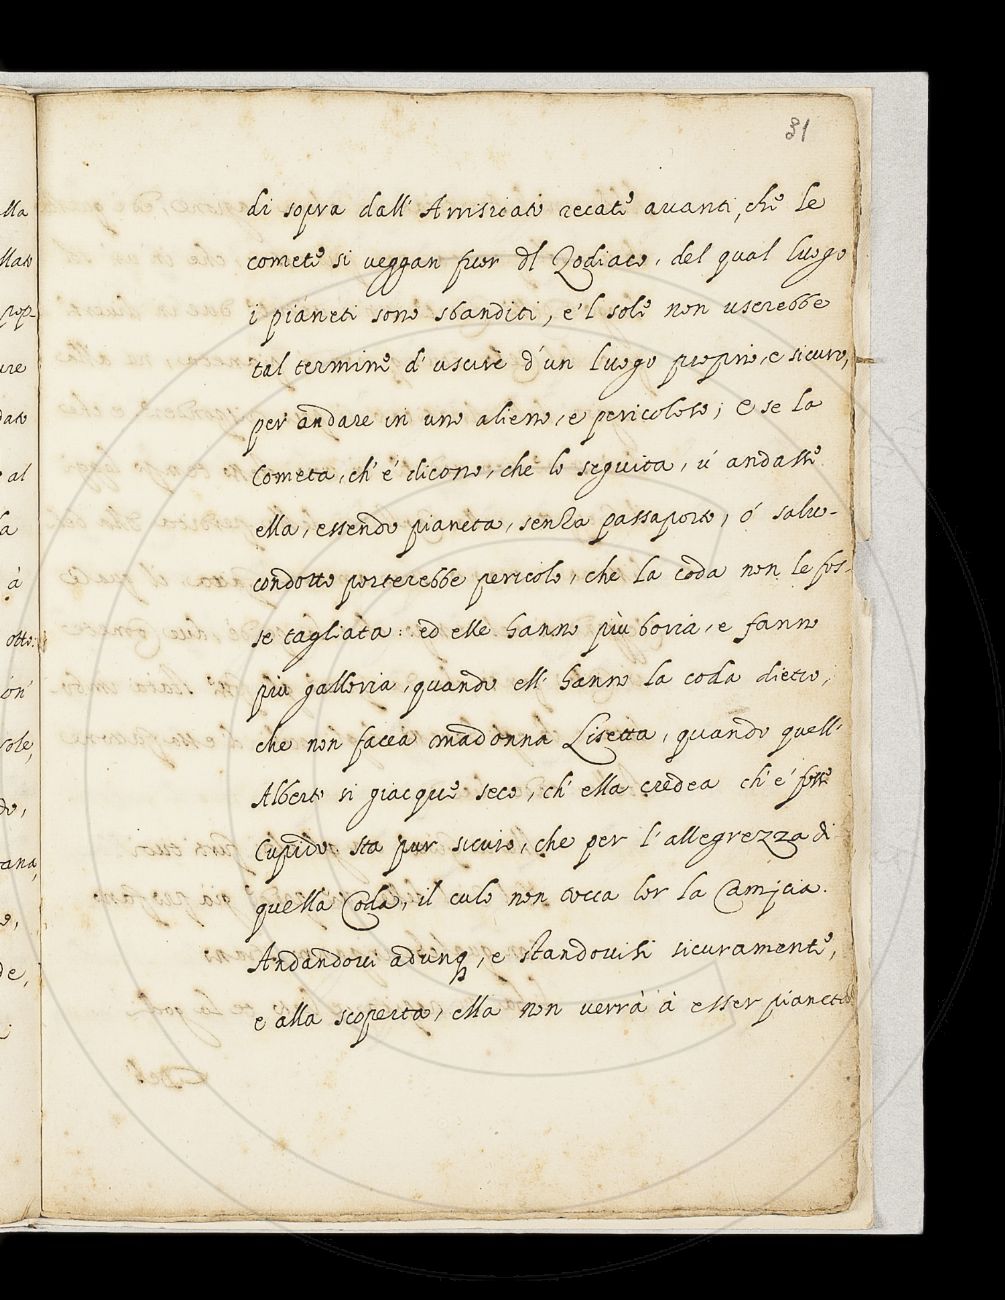 31
di sopra dall' Arrisicato recate avanti, che le
comete si veggan fuor dl Zodiaco, del qual luogo
i pianeti sono sbanditi, e 'l sole non userebbe
tal termine d' uscire d' un luogo proprio, e sicuro,
per andare in uno alieno, e pericoloso; E se la
Cometa, ch' e' dicono, che lo seguita, v' andasse
ella, essendo pianeta, senza passaporto, ó salvo-
condotto porterebbe pericolo, che la coda non le fos-
se tagliata: ed elle hanno più boria, e fanno
più galloria, quando ell' hanno la coda dietro,
che non facea madonna Lisetta, quando quell'
Alberto si giacque seco, ch' ella credea ch' e' fosse
Cupido: sta pur sicuro, che per l' allegrezza di
quella Coda, il culo non tocca lor la Camicia.
Andandovi adunq, e standovisi sicuramente,
e alla scoperta, ella non verrà à esser pianeta
lla
llato
prop
ure
dato
e al
la
à
otto:
ion'
sole,
do,
rana,
o,
de,